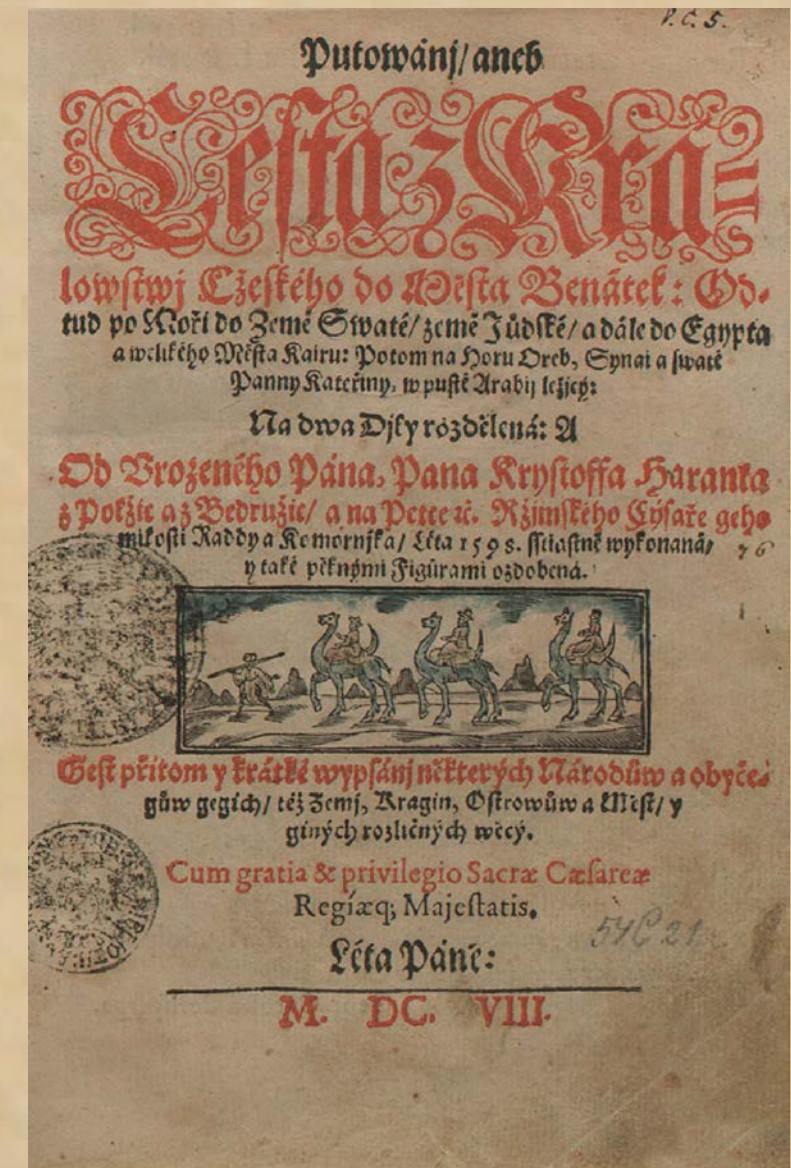 P. C. 5.
Putowánj/ aneb
Cesta z Krá=
lowstwj Cžeského do Města Benátek: Od=
tud po Moři do Země Swaté/ země Jůdské/ a dále do Egypta
a welikého Města Kairu: Potom na Horu Oreb, Synai a swaté
Panny Kateřiny, w pusté Arabij ležjcý:
Na dwa Djly rozdělená: A
Od Vrozeného Pána, Pana Krysstoffa Haranta
z Polžic a z Bedružic/ a na Petce ꝛc. Ržimského Cýsaře geho
milosti Raddy a Komornjka/ Léta 1598. sstiastně wykonaná/
76
y také pěknými Figůrami ozdobená.
Gest přitom y krátké wypsánj některých Národůw a obyče=
gůw gegich/ též Zemj, Kragin, Ostrowůw a Měst/ y
giných rozličných wěcý.
Cum gratia & privilegio Sacræ Cæsareæ
Regiæq; Majestatis.
54C 21
Léta Páně:
M. DC. VIII.